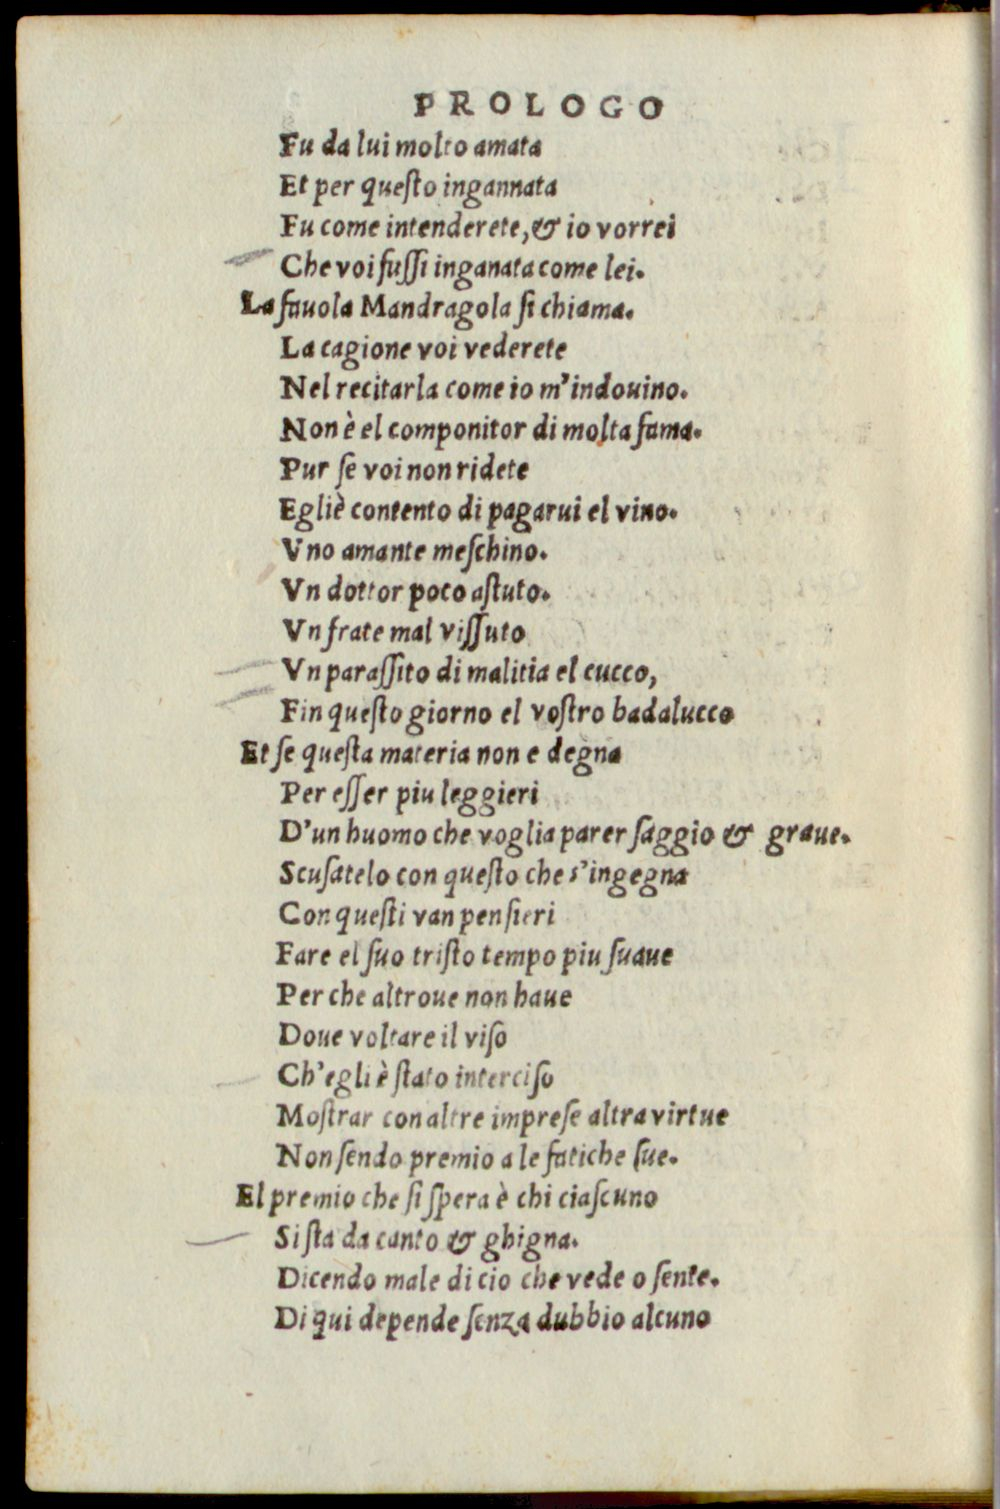 PROLOGO
Fu da lui molto amata
Et per queſto ingannata
Fu come intenderete, & io vorrei
Che voi fuſſi inganata come lei.
La fauola Mandragola ſi chiama.
La cagione voi vederete
Nel recitarla come io m'indouino.
Non è el componitor di molta fama.
Pur ſe voi non ridete
Egliè contento di pagarui el vino.
Vno amante meſchino.
Vn dottor poco aſtuto.
Vn frate mal viſſuto
Vn paraſſito di malitia el cucco,
Fin queſto giorno el voſtro badalucco
Et ſe queſta materia non e degna
Per eſſer piu leggieri
D'un huomo che voglia parer ſaggio & graue.
Scuſatelo con queſto che s'ingegna
Con queſti van penſieri
Fare el ſuo triſto tempo piu ſuaue
Per che altroue non haue
Doue voltare il viſo
Ch'egli è ſtato interciſo
Moſtrar con altre impreſe altra virtue
Non ſendo premio a le fatiche ſue.
El premio che ſi ſpera è chi ciaſcuno
Si ſta da canto & ghigna.
Dicendo male di cio che vede o ſente.
Di qui depende ſenza dubbio alcuno